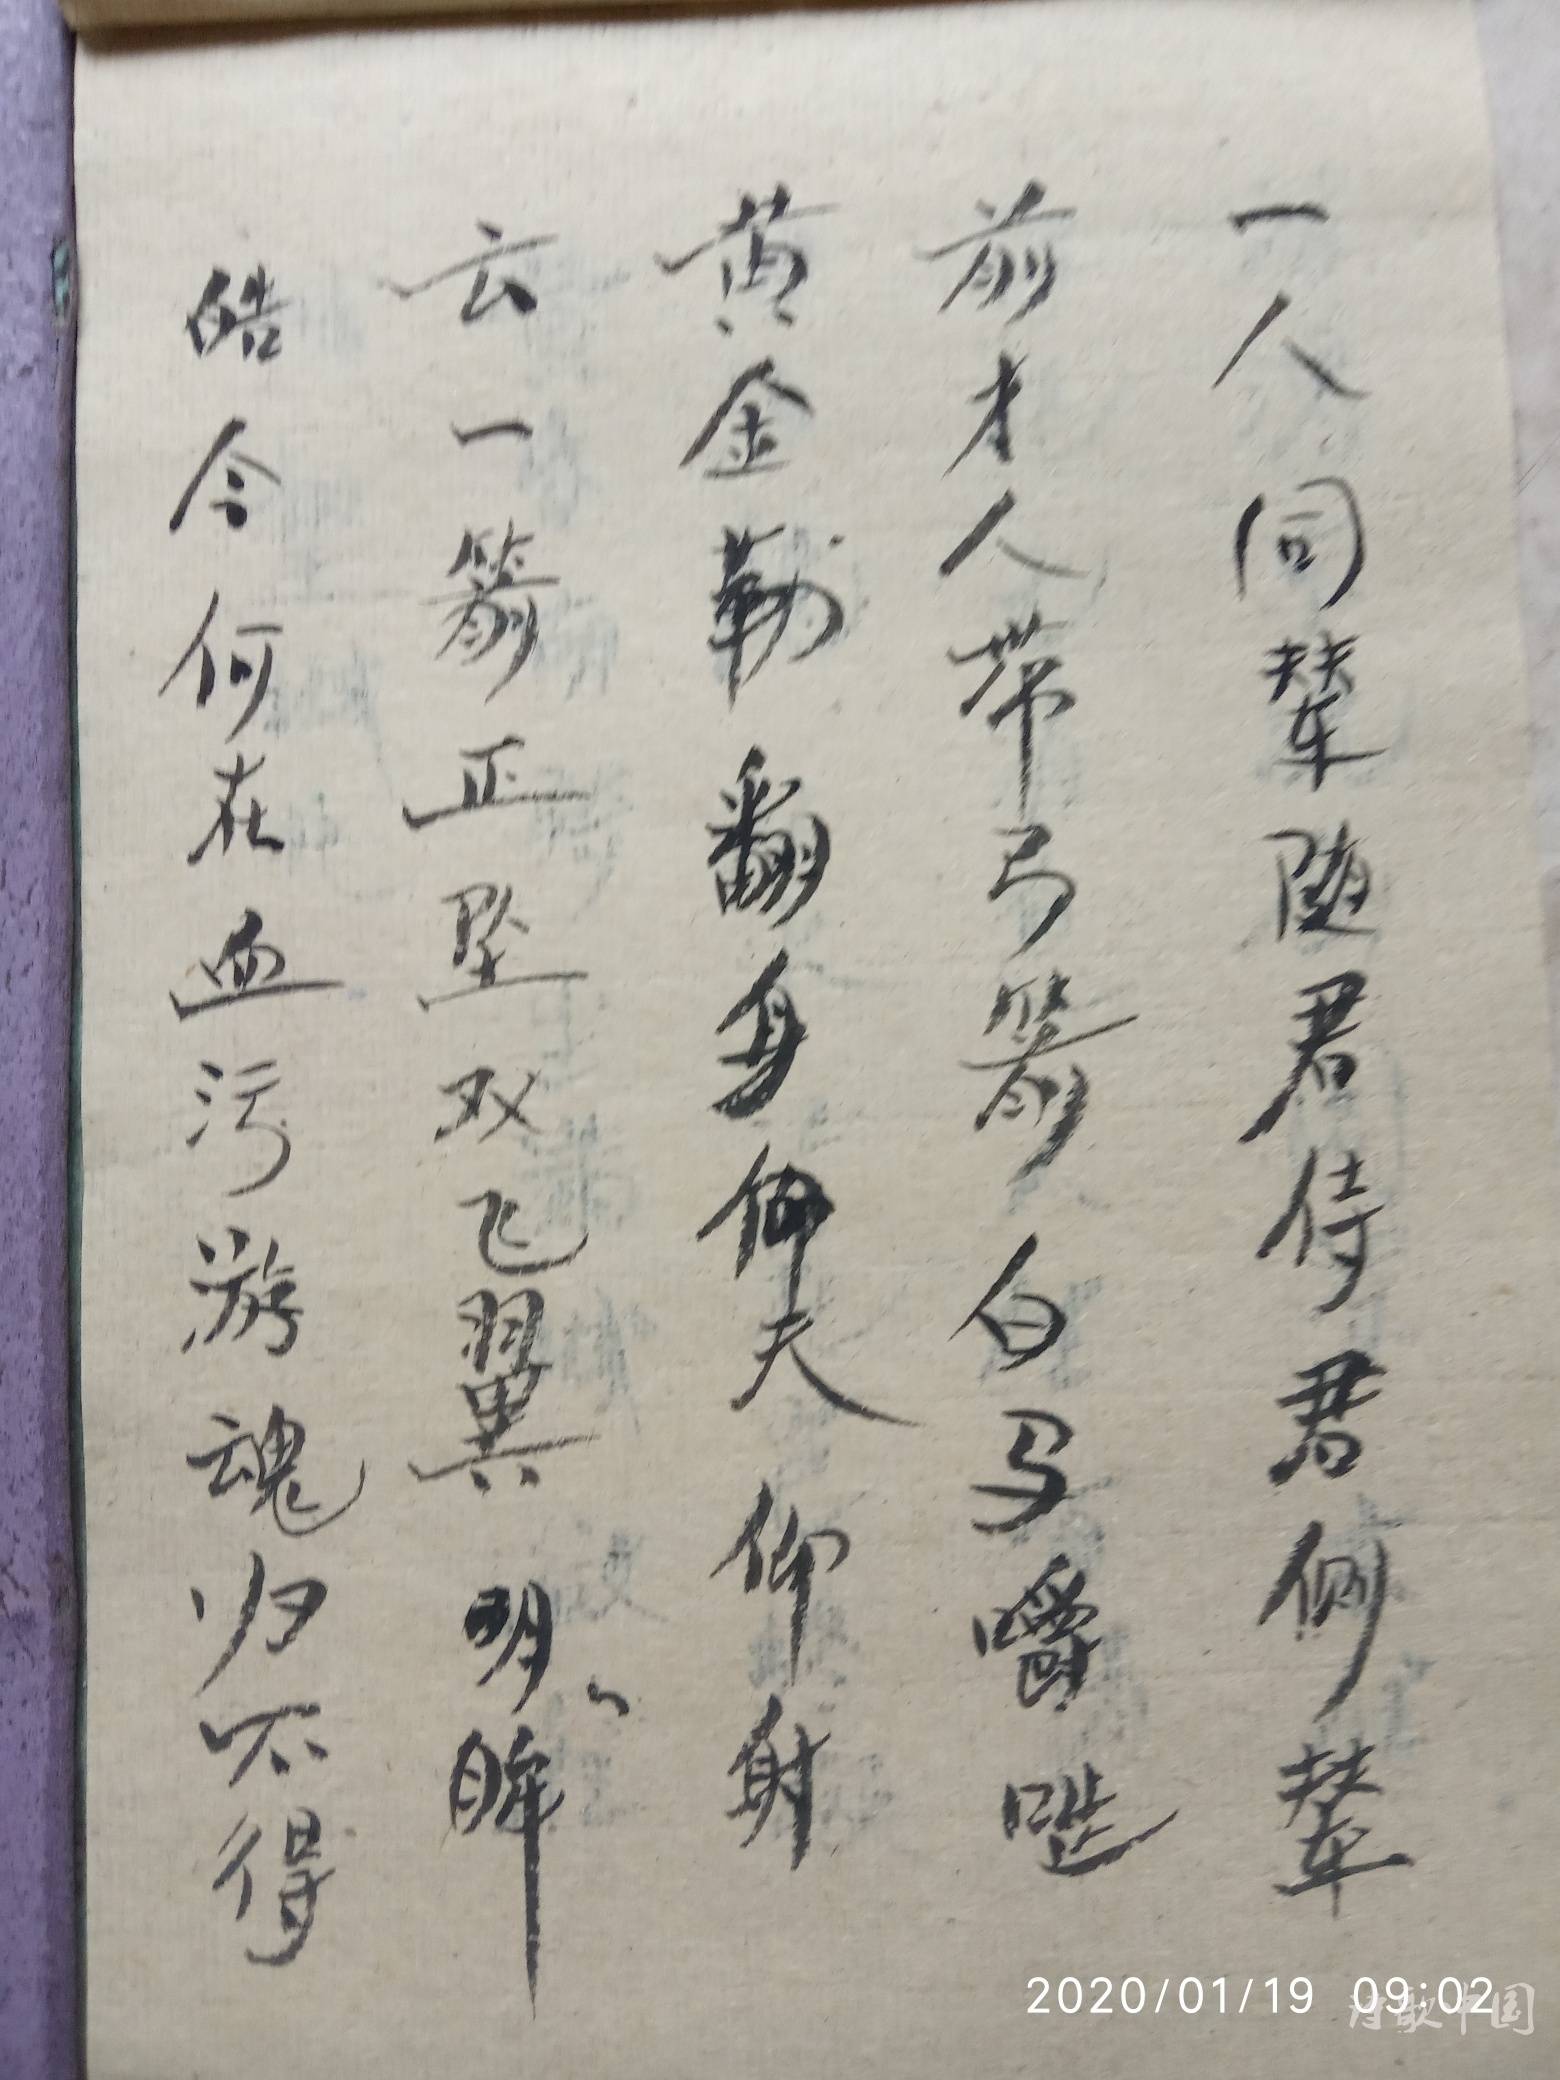 一人同辇随君侍君侧辇
前才人带弓箭白马嚼啮
黄金勒翻身仰天仰射
云一箭正坠双飞翼明眸
皓今何在血污游魂归不得
2020/01/19 09:02
诗歌中国